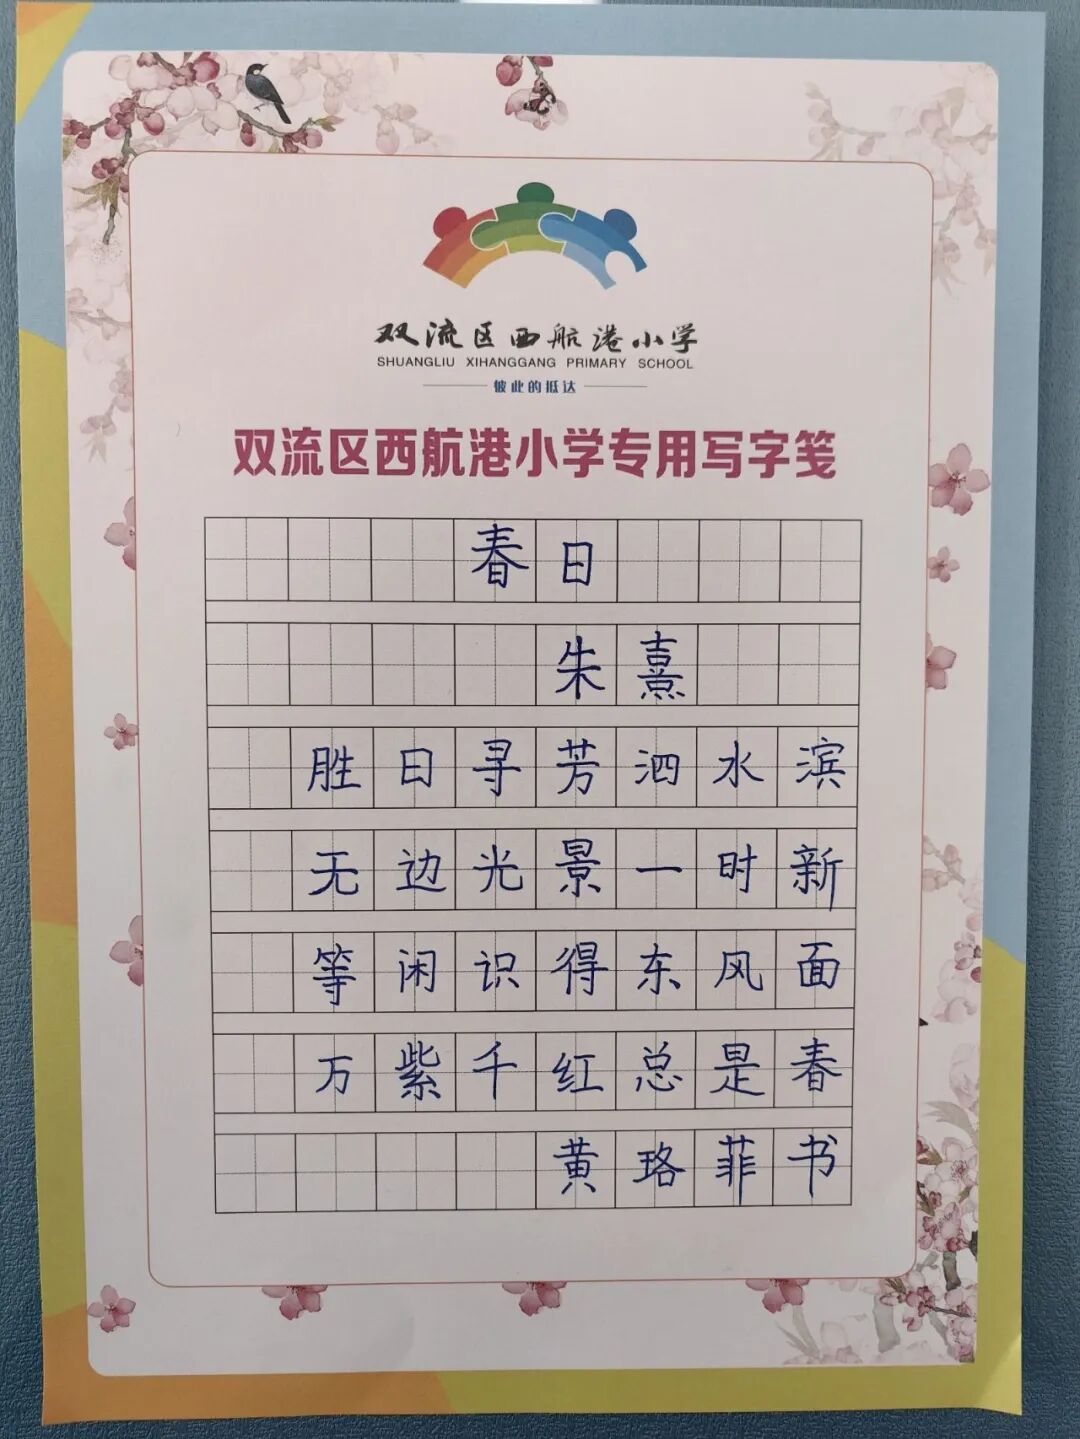 双流区西航港小学
SHUANGLIU XIHANGGANG PRIMARY SCHOOL
彼此的抵达
双流区西航港小学专用写字笺
春日
朱熹
胜日寻芳泗水滨
无边光景一时新
等闲识得东风面
万紫千红总是春
黄珞菲书